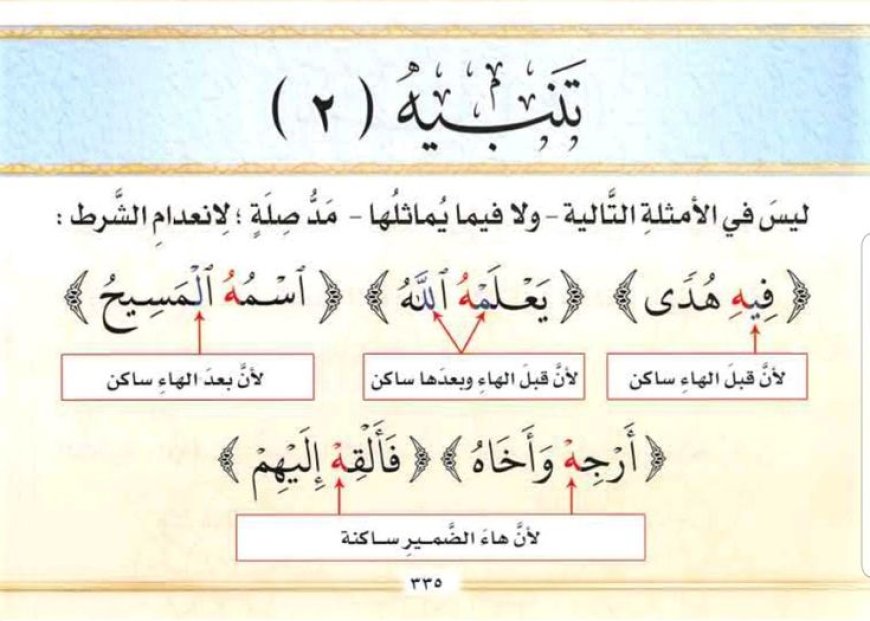 تَنبِيهُ ( ٢ )
ليسَ في الأمثلةِ التَّالية - ولا فيما يُماثلُها - مَدُّ صِلَةٍ ؛ لِانعدامِ الشَّرط :
﴿ فِيهِ هُدًى ﴾ ﴿ يَعْلَمْهُ ٱللَّهُ ﴾ ﴿ ٱسْمُهُ ٱلْمَسِيحُ ﴾
لأنَّ قبلَ الهاءِ ساكن لأنَّ قبلَ الهاءِ وبعدَها ساكن لأنَّ بعدَ الهاءِ ساكن
﴿ أَرْجِهْ وَأَخَاهُ ﴾ ﴿ فَأَلْقِهْ إِلَيْهِمْ ﴾
لأنَّ هاءَ الضَّمـيرِ سـاكنة
٣٣٥